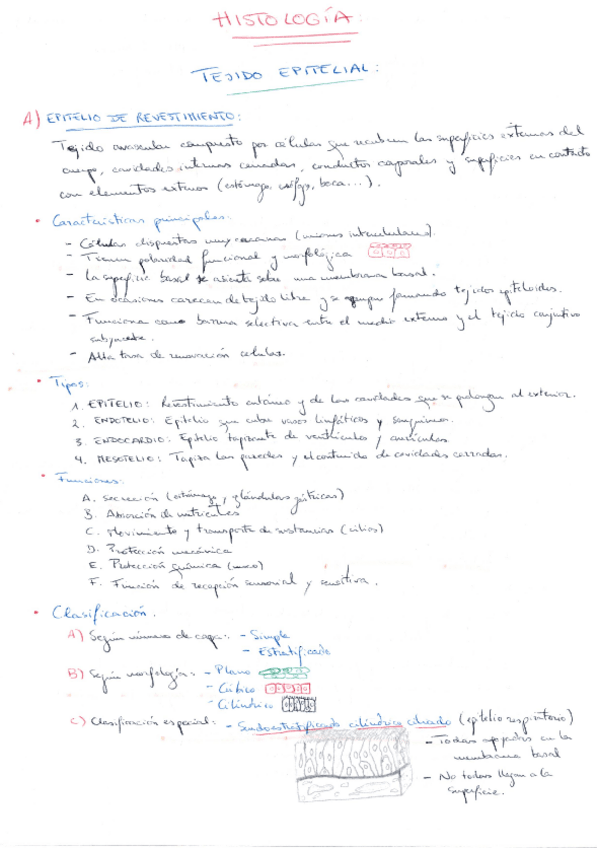 HISTOLOGÍA:
TEJIDO EPITELIAL:
A) EPITELIO DE REVESTIMIENTO:
Tejido avascular compuesto por células que recubren las superficies externas del
cuerpo, cavidades internas cerradas, conductos corporales y superficies en contacto
con elementos externos (estómago, esófago, boca...).
• Características principales:
- Células dispuestas muy cercanas (uniones intercelulares).
- Tienen polaridad funcional y morfológica
- La superficie basal se asienta sobre una membrana basal.
- En ocasiones carecen de tejido libre y se agrupan formando tejidos epiteloides.
- Funciona como barrera selectiva entre el medio externo y el tejido conjuntivo
subyacente.
- Alta tasa de renovación celular.
• Tipos:
1. EPITELIO: Revestimiento cutáneo y de las cavidades que se prolongan al exterior.
2. ENDOTELIO: Epitelio que cubre vasos linfáticos y sanguíneos.
3. ENDOCARDIO: Epitelio tapizante de ventrículos y aurículas.
4. MESOTELIO: Tapiza las paredes y el contenido de cavidades cerradas.
• Funciones:
A. Secreción (estómago, glándulas gástricas)
B. Absorción de nutrientes
C. Movimiento y transporte de sustancias (cilios)
D. Protección mecánica
E. Protección química (moco)
F. Función de recepción sensorial y sensitiva.
• Clasificación.
A) Según número de capa: - Simple
- Estratificado
B) Según morfología: - Plano
- Cúbico
- Cilíndrico
C) Clasificación especial: - Seudoestratificado cilíndrico ciliado (epitelio respiratorio)
- Todas apoyadas en la
membrana basal
- No todas llegan a la
superficie.